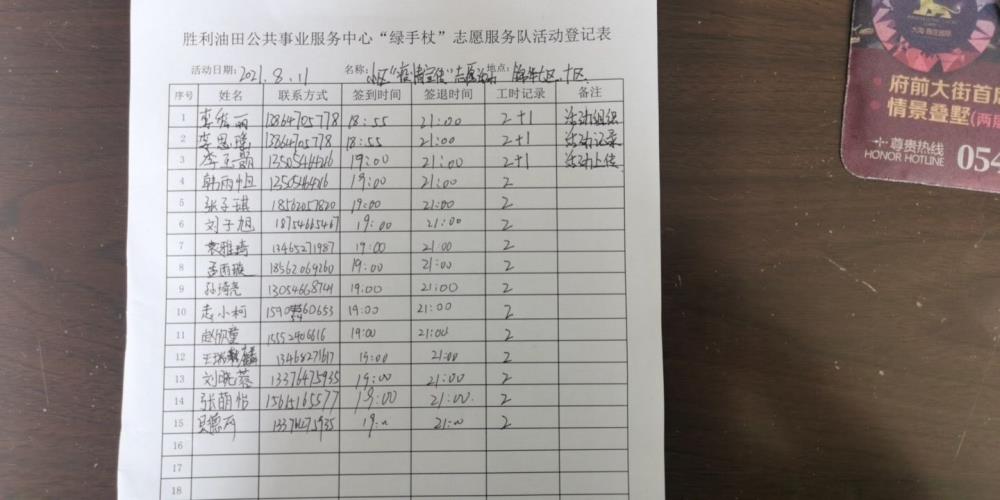 胜利油田公共事业服务中心“绿手杖”志愿服务队活动登记表
活动日期: 2021.8.11 名称: 小区“疫情宣传”志愿活动 地点:
序号 姓名 联系方式 签到时间 签退时间 工时记录 备注
1 丽 13864705778 18:55 21:00 2+1 活动组织
2 李思 13864705778 18:55 21:00 2+1 活动记录
3 李 19:00 21:00 2+1 活动上传
4 韩雨 19:00 21:00 2
5 张子琪 18562057820 19:00 21:00 2
6 刘子旭 18754665467 19:00 21:00 2
7 雅琦 13465271987 19:00 21:00 2
8 孟雨璇 18562069260 19:00 21:00 2
9 孙琦 13054668741 19:00 21:00 2
10 志小柯 19:00 21:00 2
11 赵欣童 15552906616 19:00 21:00 2
12 王 13468271617 19:00 21:00 2
13 刘晓蓉 13376475935 19:00 21:00 2
14 张萌怡 15615165577 19:00 21:00 2
15 19:00 21:00 2
16
17
18
大海
府前大街首
情景叠墅(两
尊贵热线
HONOR HOTLINE
054